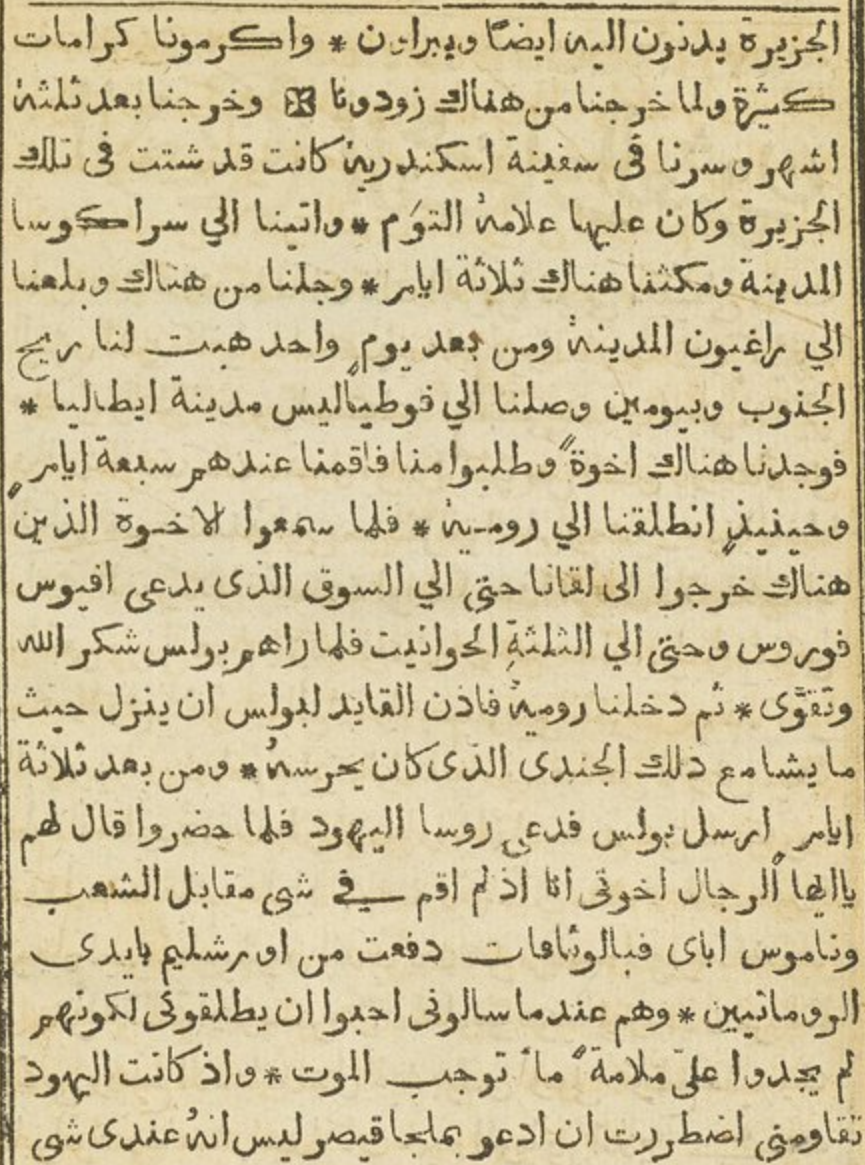 الجزيرة يدنون اليه ايضًا ويبراون * واكرمونا كرامات
كثيرة ولما خرجنا من هناك زودونا ⁜ وخرجنا بعد ثلثة
اشهر وسرنا في سفينة اسكندرية كانت قد شتت في تلك
الجزيرة وكان عليها علامة التوَم * واتينا الي سراكوسا
المدينة ومكثنا هناك ثلاثة ايامٍ * وجلنا من هناك وبلعنا
الي راغيون المدينة ومن بعد يومٍ واحد هبت لنا ريح
الجنوب وبيومين وصلنا الي فوطياليس مدينة ايطاليا *
فوجدنا هناك اخوةً وطلبوا منا فاقمنا عندهم سبعة ايامٍ
وحينيذٍ انطلقنا الي رومية * فلما سمعوا الاخوة الذين
هناك خرجوا الى لقانا حتي الي السوق الذى يدعى افيوس
فوروس وحتي الي الثلثةِ الحوانيت فلما راهم بولس شكر الله
وتقوَّى * ثم دخلنا رومية فاذن القايد لبولس ان ينزل حيث
ما يشا مع ذلك الجندى الذى كان يحرسهُ * ومن بعد ثلاثة
ايامٍ ارسل بولس فدعي روسا اليهود فلما حضروا قال لهم
ياايها الرجال اخوتي انا اذ لم اقم في شي مقابل الشعب
وناموس اباى فبالوثاقات دفعت من اورشليم بايدى
الرومانيين * وهم عندما سالونى احبوا ان يطلقونى لكونهم
لم يجدوا عليّ ملامةً ما توجب الموت * واذ كانت اليهود
تقاومني اضطررت ان ادعو بملجا قيصر ليس انهُ عندى شي